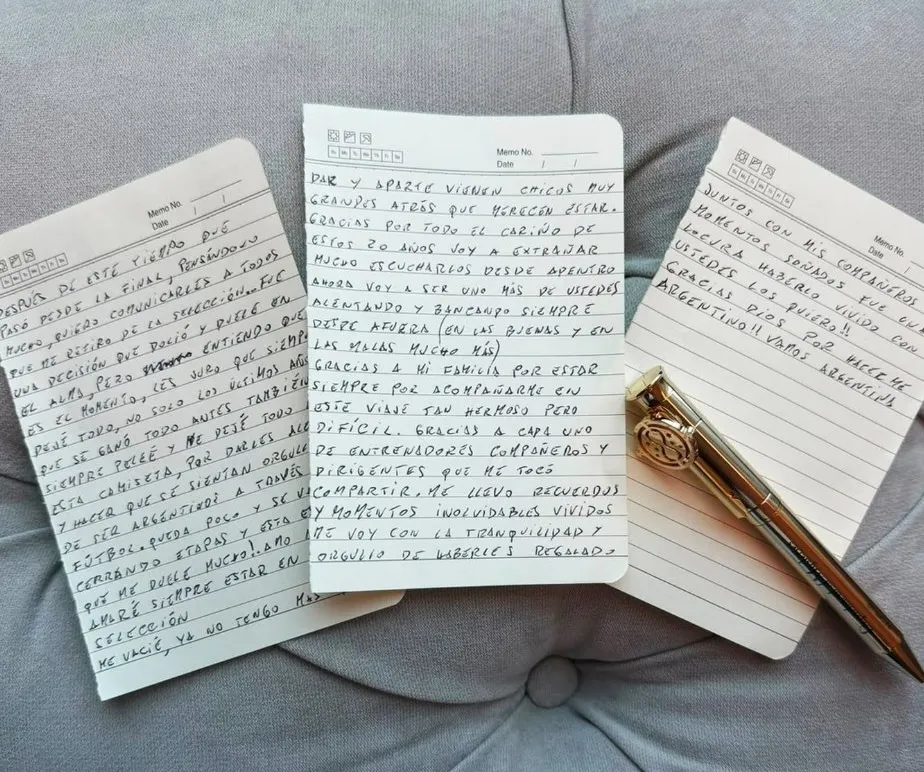 Memo No.
Date / /
ESPUÉS DE ESTE TIEMPO QUE
PASÓ DESDE LA FINAL, PENSÁNDOLO
MUCHO, QUIERO COMUNICARLES A TODOS
QUE ME RETIRO DE LA SELECCIÓN.. FUE
UNA DECISIÓN QUE DOLIÓ Y DUELE EN
EL ALMA, PERO ENTIENDO QUE
ES EL MOMENTO, LES JURO QUE SIEMP
DEJÉ TODO, NO SOLO LOS ÚLTIMOS AÑO
QUE SE GANÓ TODO ANTES TAMBIÉN
SIEMPRE PELEÉ Y ME DEJÉ TODO
ESTA CAMISETA, POR DARLES ALE
Y HACER QUE SE SIENTAN ORGULL
DE SER ARGENTINOS A TRAVÉS
FÚTBOL. QUEDA POCO Y SE VA
CERRANDO ETAPAS Y ESTA E
QUÉ ME DUELE MUCHO!! AMO
AMARÉ SIEMPRE ESTAR EN
SELECCIÓN
ME VACIÉ, YA NO TENGO MÁS
Memo No.
Date / /
Su Mo Tu We Th Fr Sa
DAR Y APARTE VIENEN CHICOS MUY
GRANDES ATRÁS QUE MERECEN ESTAR.
GRACIAS POR TODO EL CARIÑO DE
ESTOS 20 AÑOS VOY A EXTRAÑAR
MUCHO ESCUCHARLOS DESDE ADENTRO
AHORA VOY A SER UNO MÁS DE USTEDES
ALENTANDO Y BANCANDO SIEMPRE
DESDE AFUERA (EN LAS BUENAS Y EN
LAS MALAS MUCHO MÁS)
GRACIAS A MI FAMILIA POR ESTAR
SIEMPRE POR ACOMPAÑARME EN
ESTE VIAJE TAN HERMOSO PERO
DIFÍCIL. GRACIAS A CADA UNO
DE ENTRENADORES COMPAÑEROS Y
DIRIGENTES QUE ME TOCÓ
COMPARTIR. ME LLEVO RECUERDOS
Y MOMENTOS INOLVIDABLES VIVIDOS
ME VOY CON LA TRANQUILIDAD Y
ORGULLO DE HABERLES REGALADO
Memo No.
Date /
JUNTOS CON MIS COMPAÑEROS
MOMENTOS SOÑADOS FUE UNA
LOCURA HABERLO VIVIDO CON
USTEDES LOS QUIERO!!
GRACIAS DIOS POR HACERME
ARGENTINO!! VAMOS ARGENTINA